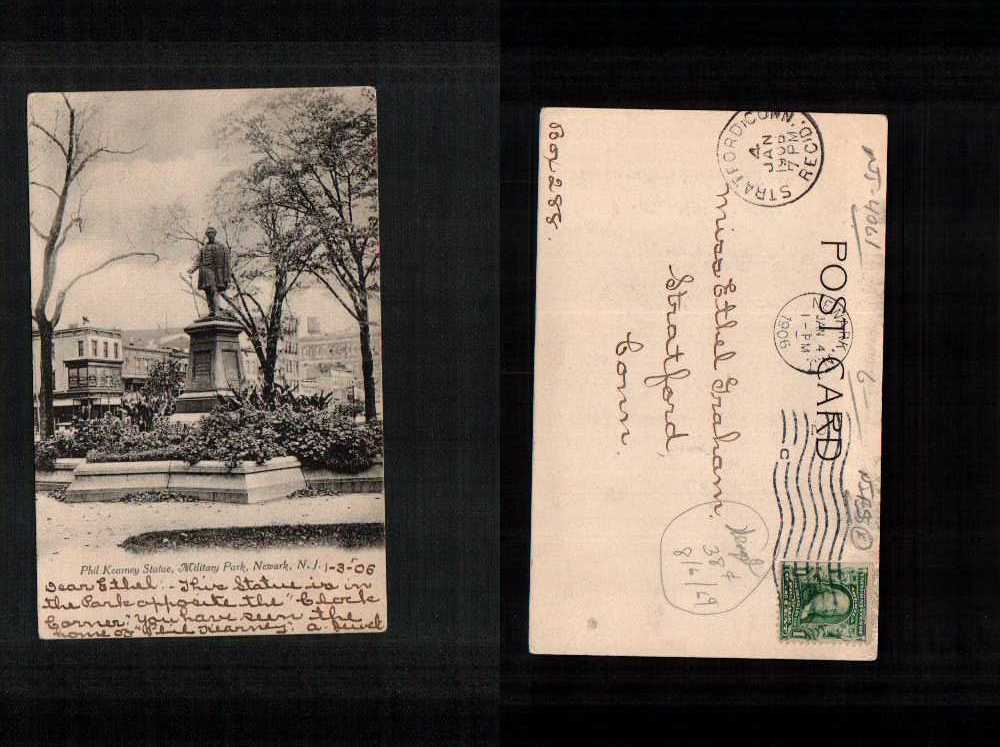 Phil Kearney Statue, Military Park, Newark, N. J. 1-3-06
Dear Ethel:- This Statue is in
the Park opposite the "Clock
Corner". You have seen the
home of "Phil Kearney": a
Box 288.
STRATFORD, CONN.
JAN
4
1906
7 PM
REC'D.
Miss Ethel Graham.
Stratford,
Conn.
POST CARD
NEWARK,
JAN 4
1-PM
1906
NJ-4061
6
38¢
8/6/69